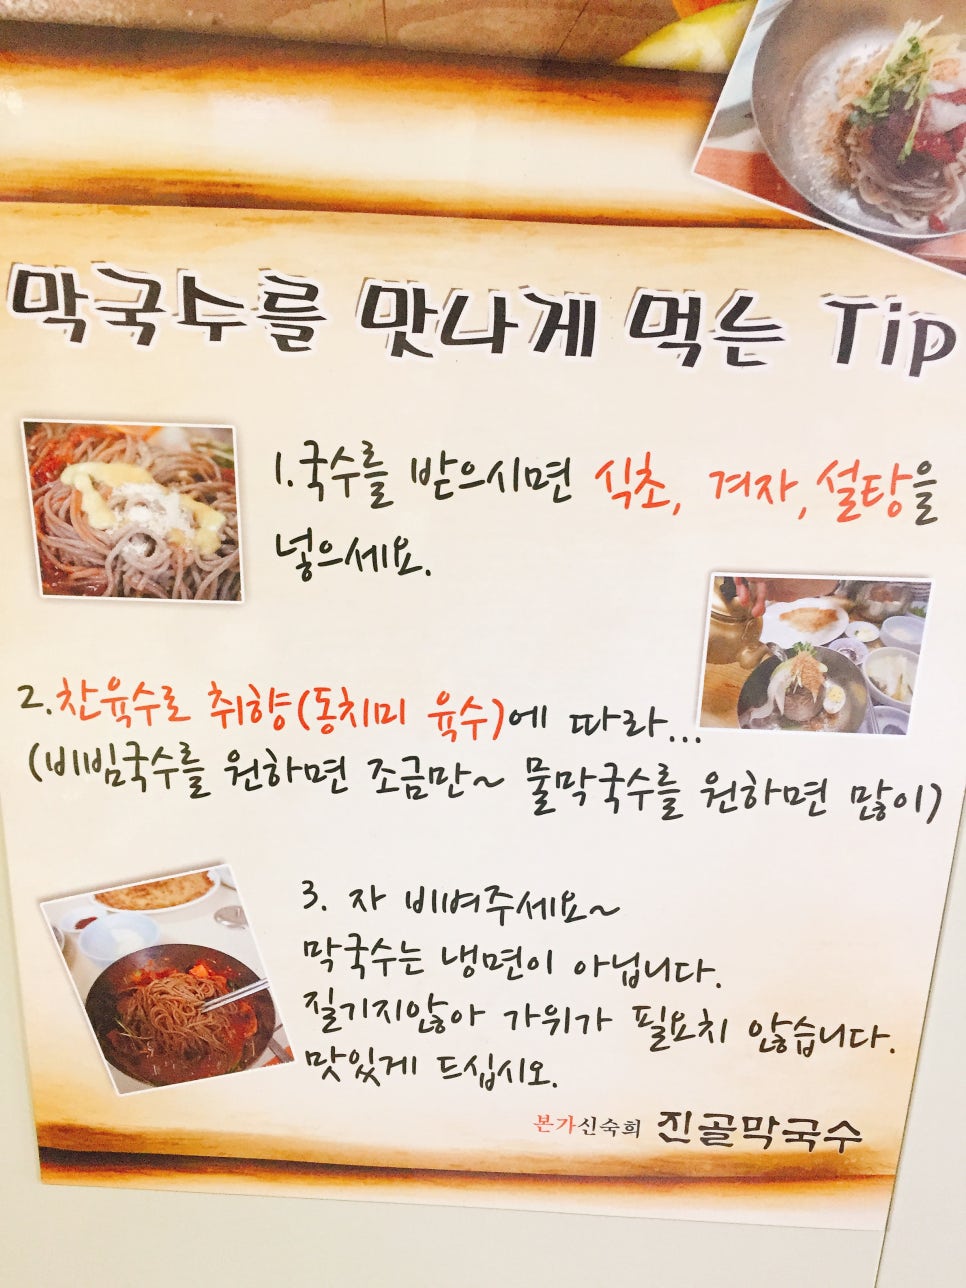 막국수를 맛나게 먹는 Tip
1.국수를 받으시면 식초, 겨자, 설탕을
넣으세요.
2.찬육수로 취향(동치미 육수)에 따라...
(비빔국수를 원하면 조금만~ 물막국수를 원하면 많이)
3. 자 비벼주세요~
막국수는 냉면이 아닙니다.
질기지않아 가위가 필요치 않습니다.
맛있게 드십시오.
본가신숙희 진골막국수